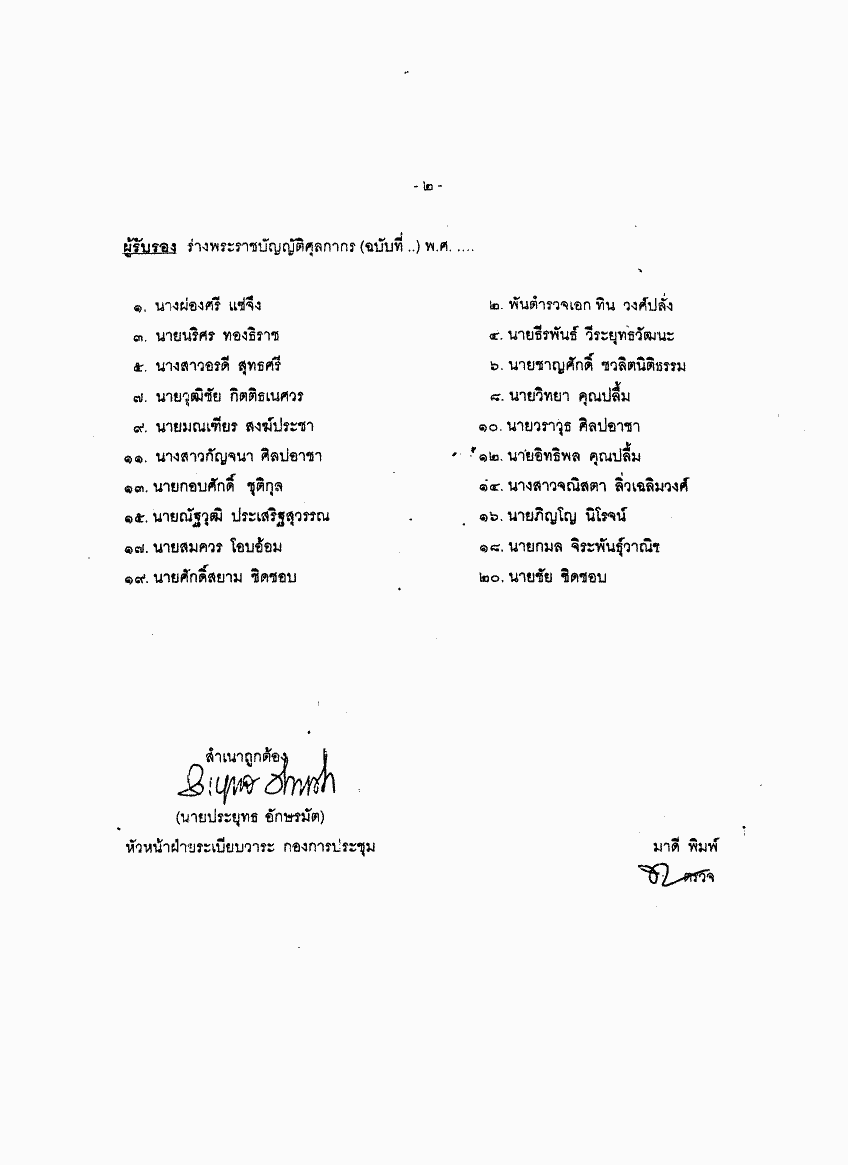 - ๒ -
ผู้รับรอง ร่างพระราชบัญญัติศุลกากร (ฉบับที่ ..) พ.ศ. ....
๑. นางผ่องศรี แซ่จึง ๒. พันตำรวจเอก ทิน วงศ์ปลั่ง
๓. นายนริศร ทองธิราช ๔. นายธีรพันธ์ วีระยุทธวัฒนะ
๕. นางสาวอรดี สุทธศรี ๖. นายชาญศักดิ์ ชวลิตนิติธรรม
๗. นายวุฒิชัย กิตติธเนศวร ๘. นายวิทยา คุณปลื้ม
๙. นายมณเฑียร สงฆ์ประชา ๑๐. นายวราวุธ ศิลปอาชา
๑๑. นางสาวกัญจนา ศิลปอาชา ๑๒. นายอิทธิพล คุณปลื้ม
๑๓. นายกอบศักดิ์ ชุติกุล ๑๔. นางสาวจณิสตา ลิ่วเฉลิมวงศ์
๑๕. นายณัฐวุฒิ ประเสริฐสุวรรณ ๑๖. นายภิญโญ นิโรจน์
๑๗. นายสมควร โอบอ้อม ๑๘. นายกมล จิระพันธุ์วาณิช
๑๙. นายศักดิ์สยาม ชิดชอบ ๒๐. นายชัย ชิดชอบ
สำเนาถูกต้อง
(นายประยุทธ อักษรมัต)
หัวหน้าฝ่ายระเบียบวาระ กองการประชุม
มาดี พิมพ์
ตรวจ